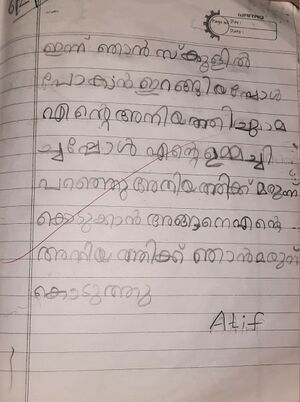 Day :
Date :
ഇന്ന് ഞാൻ സ്കൂളിൽ
പോകാൻ ഇറങ്ങിയപ്പോൾ
എന്റെ അനിയത്തി ചുമ
ച്ചപ്പോൾ എന്റെ ഉമ്മച്ചി
പറഞ്ഞു അനിയത്തിക്ക് മരുന്ന്
കൊടുക്കാൻ അങ്ങനെ എന്റെ
അനിയത്തിക്ക് ഞാൻ മരുന്ന്
കൊടുത്തു
Atif